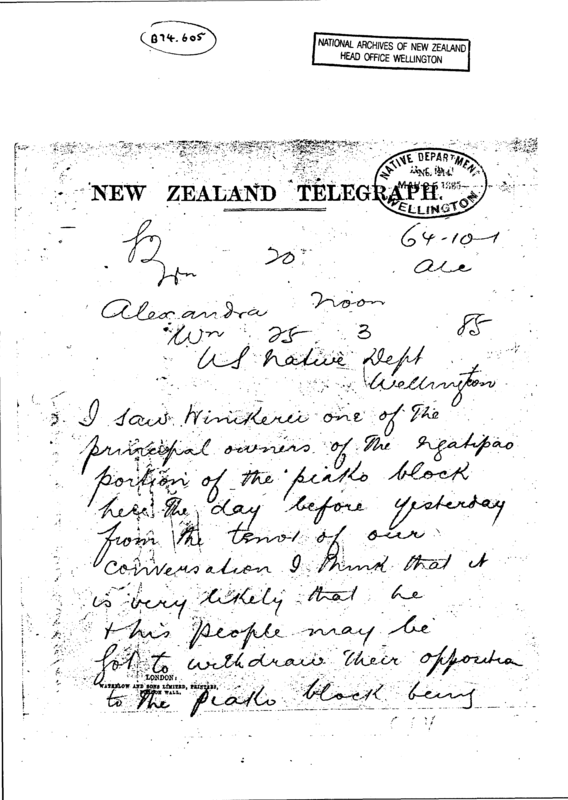 B74.605
NATIONAL ARCHIVES OF NEW ZEALAND
HEAD OFFICE WELLINGTON
NATIVE DEPARTMENT
MAR 25 1885
WELLINGTON.
NEW ZEALAND TELEGRAPH.
64-10-1
20
Ale
Alexandra Noon
Wn 25 3 85
US Native Dept
Wellington
I saw Winikerei one of the
principal owners of the Ngatipao
portion of the piako block
here the day before yesterday
from the tenor of our
conversation I think that it
is very likely that he
& his people may be
got to withdraw their opposition
to the Piako block being
LONDON:
WATERLOW AND SONS LIMITED, PRINTERS,
LONDON WALL.